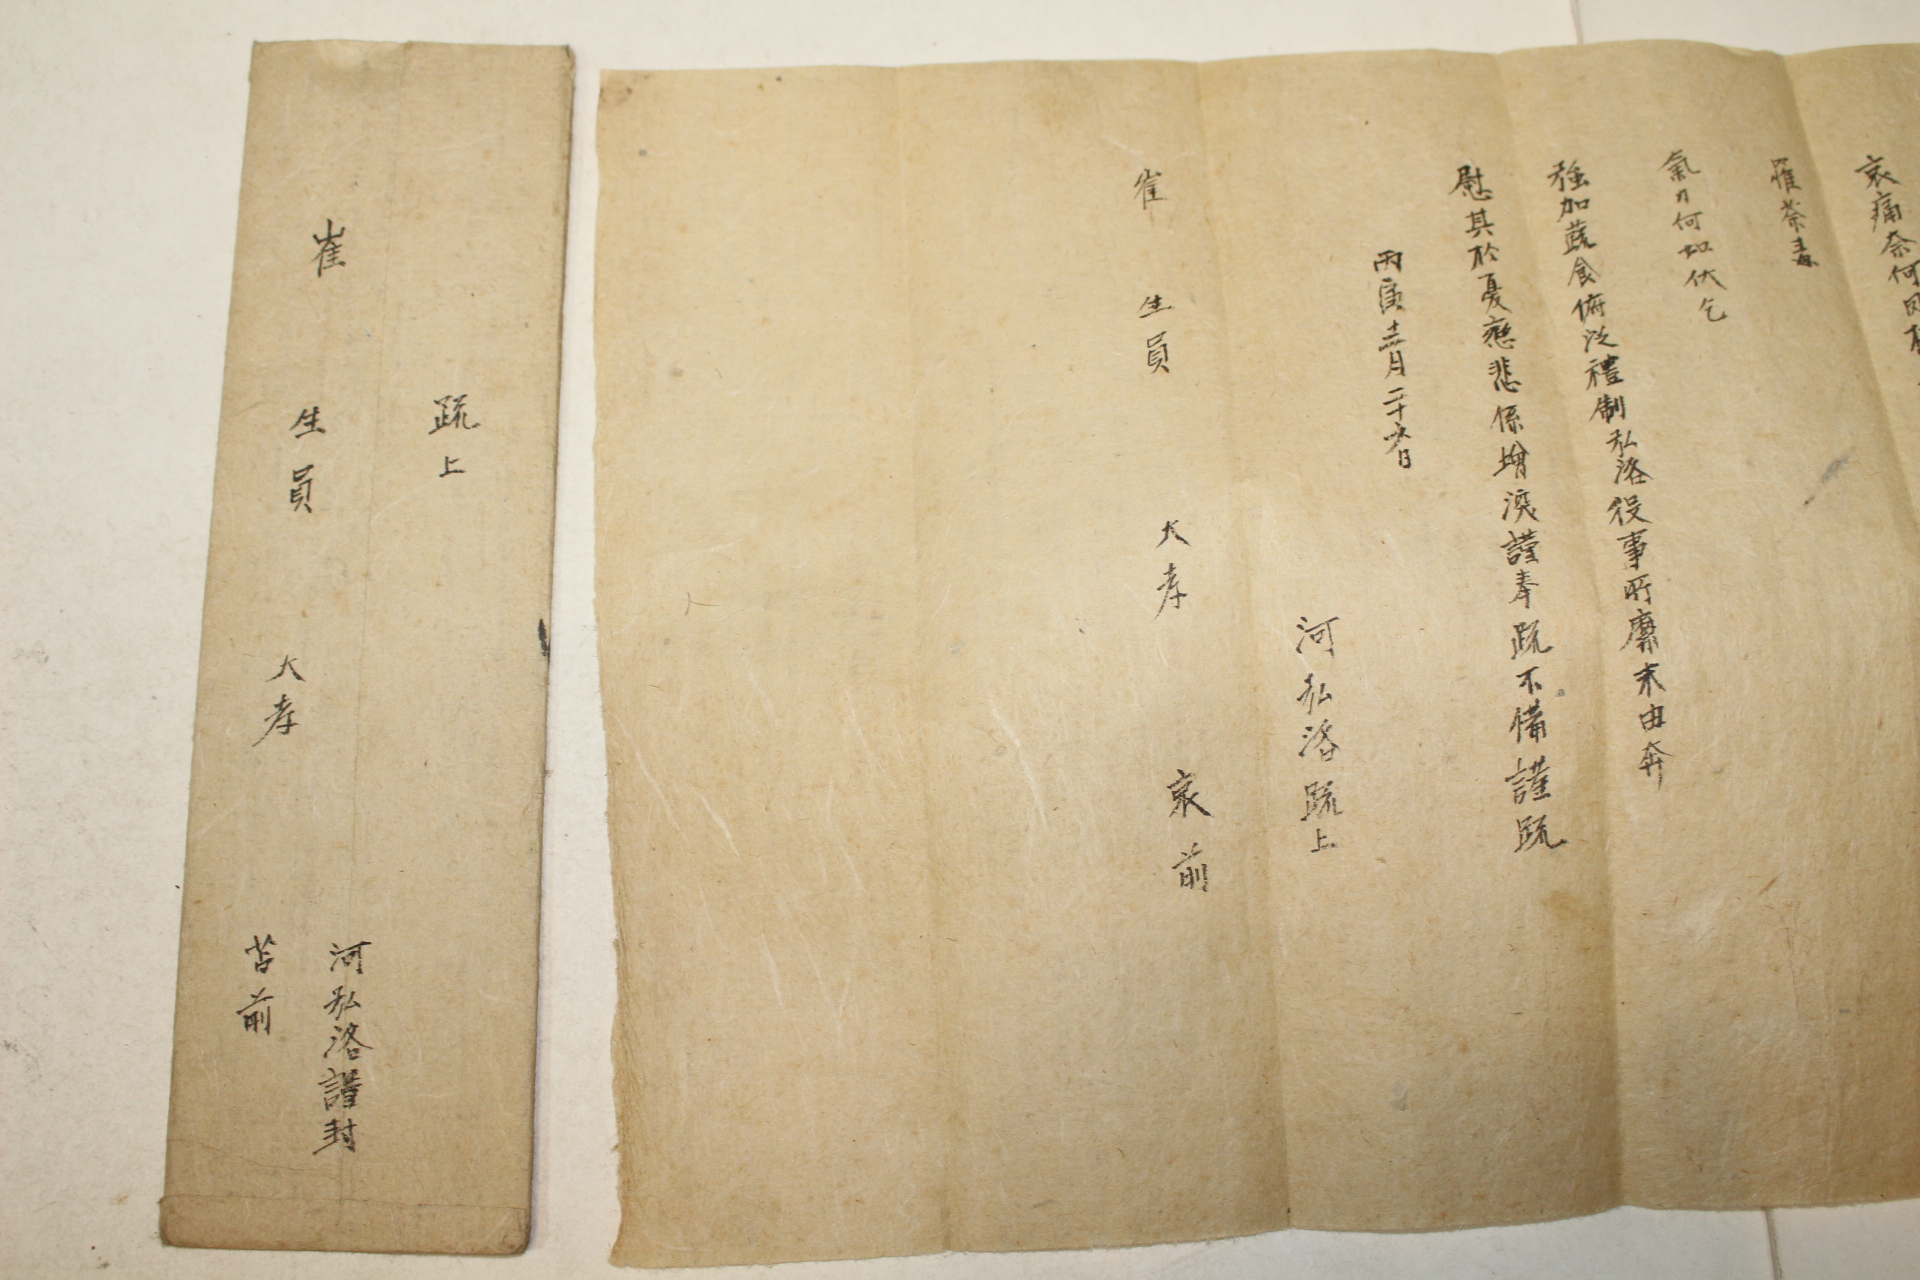 哀痛奈何
罹荼毒
氣力何如伏乞
强加蔬食俯從禮制弘洛役事所縻末由奔
慰其於憂戀悲係增深謹奉疏不備謹疏
丙寅十二月二十六日
河弘洛疏上
崔 生員 大孝 哀前
疏上
河弘洛謹封
崔 生員 大孝 苫前